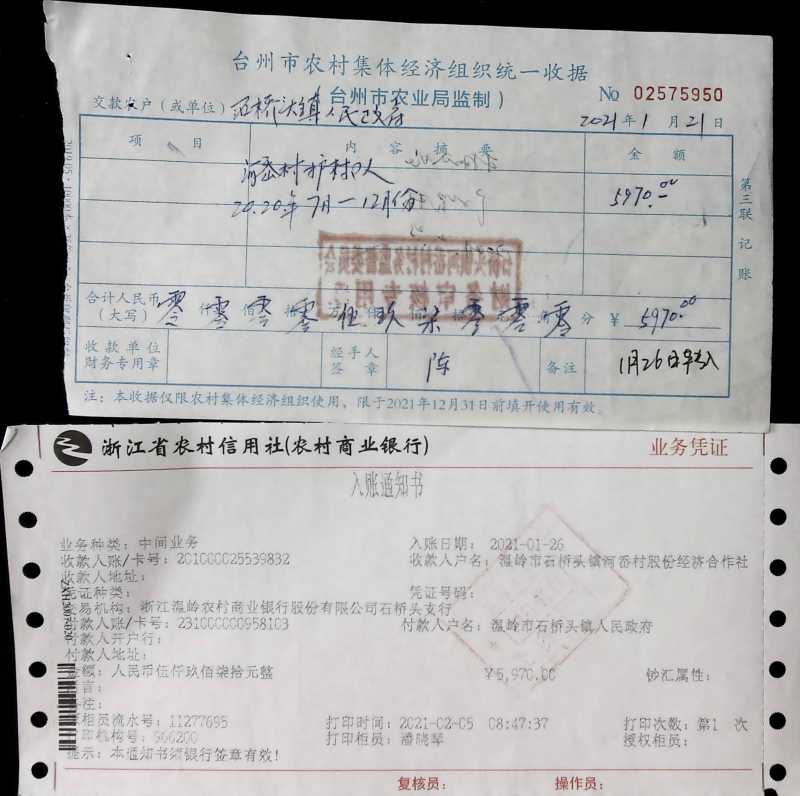 台州市农村集体经济组织统一收据
(台州市农业局监制)
No 02575950
交款农户(或单位) 石桥头镇人民政府
2021年1月21日
项目 内容摘要 金额
河岙村护村人
5970.00
2020年7月—12月份
第三联 记账
合计人民币(大写) 零 零 零 零 伍 玖 柒 零 零 零 分 ¥ 5970.00
收款单位财务专用章
经手人签章 陈
备注 1月26日
注:本收据仅限农村集体经济组织使用,限于2021年12月31日前填开使用有效。
浙江省农村信用社(农村商业银行) 业务凭证
入账通知书
业务种类:中间业务 入账日期: 2021-01-26
收款人账/卡号:201000025539832 收款人户名:温岭市石桥头镇河岙村股份经济合作社
收款人地址:
凭证种类: 凭证号码:
交易机构:浙江温岭农村商业银行股份有限公司石桥头支行
付款人账/卡号:231000000958103 付款人户名:温岭市石桥头镇人民政府
付款人开户行:
付款人地址:
金额:人民币伍仟玖佰柒拾元整 ¥5,970.00 钞汇属性:
柜员流水号:11277695 打印时间:2021-02-05 08:47:37 打印次数:第1 次
打印机构号:966200 打印柜员:潘晓琴 授权柜员:
提示:本通知书须银行签章有效!
复核员: 操作员: